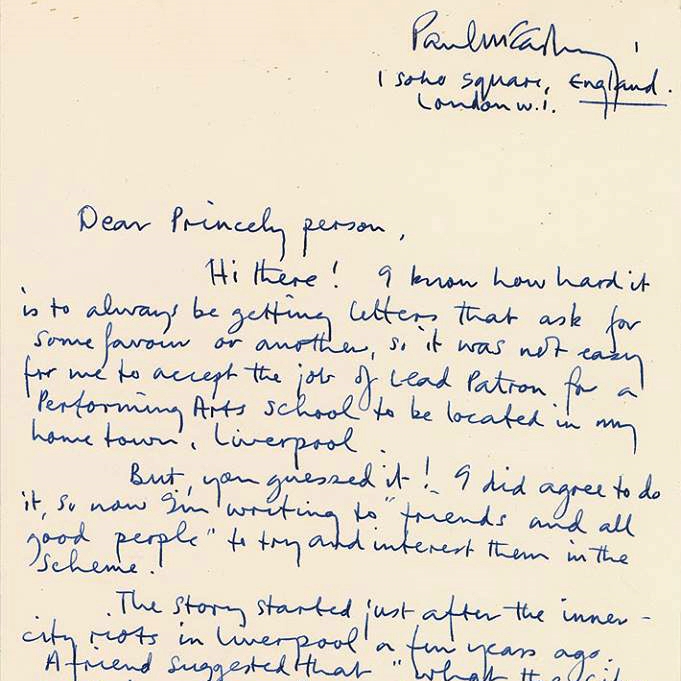 Paul McCartney
1 Soho Square, England.
London W.1.
Dear Princely person,
Hi there! I know how hard it
is to always be getting letters that ask for
some favour or another, so it was not easy
for me to accept the job of Lead Patron for a
Performing Arts School to be located in my
home town, Liverpool.
But, you guessed it! I did agree to do
it, so now I'm writing to "friends and all
good people" to try and interest them in the
scheme.
The story started just after the inner-
city riots in Liverpool a few years ago.
A friend suggested that "what the cit